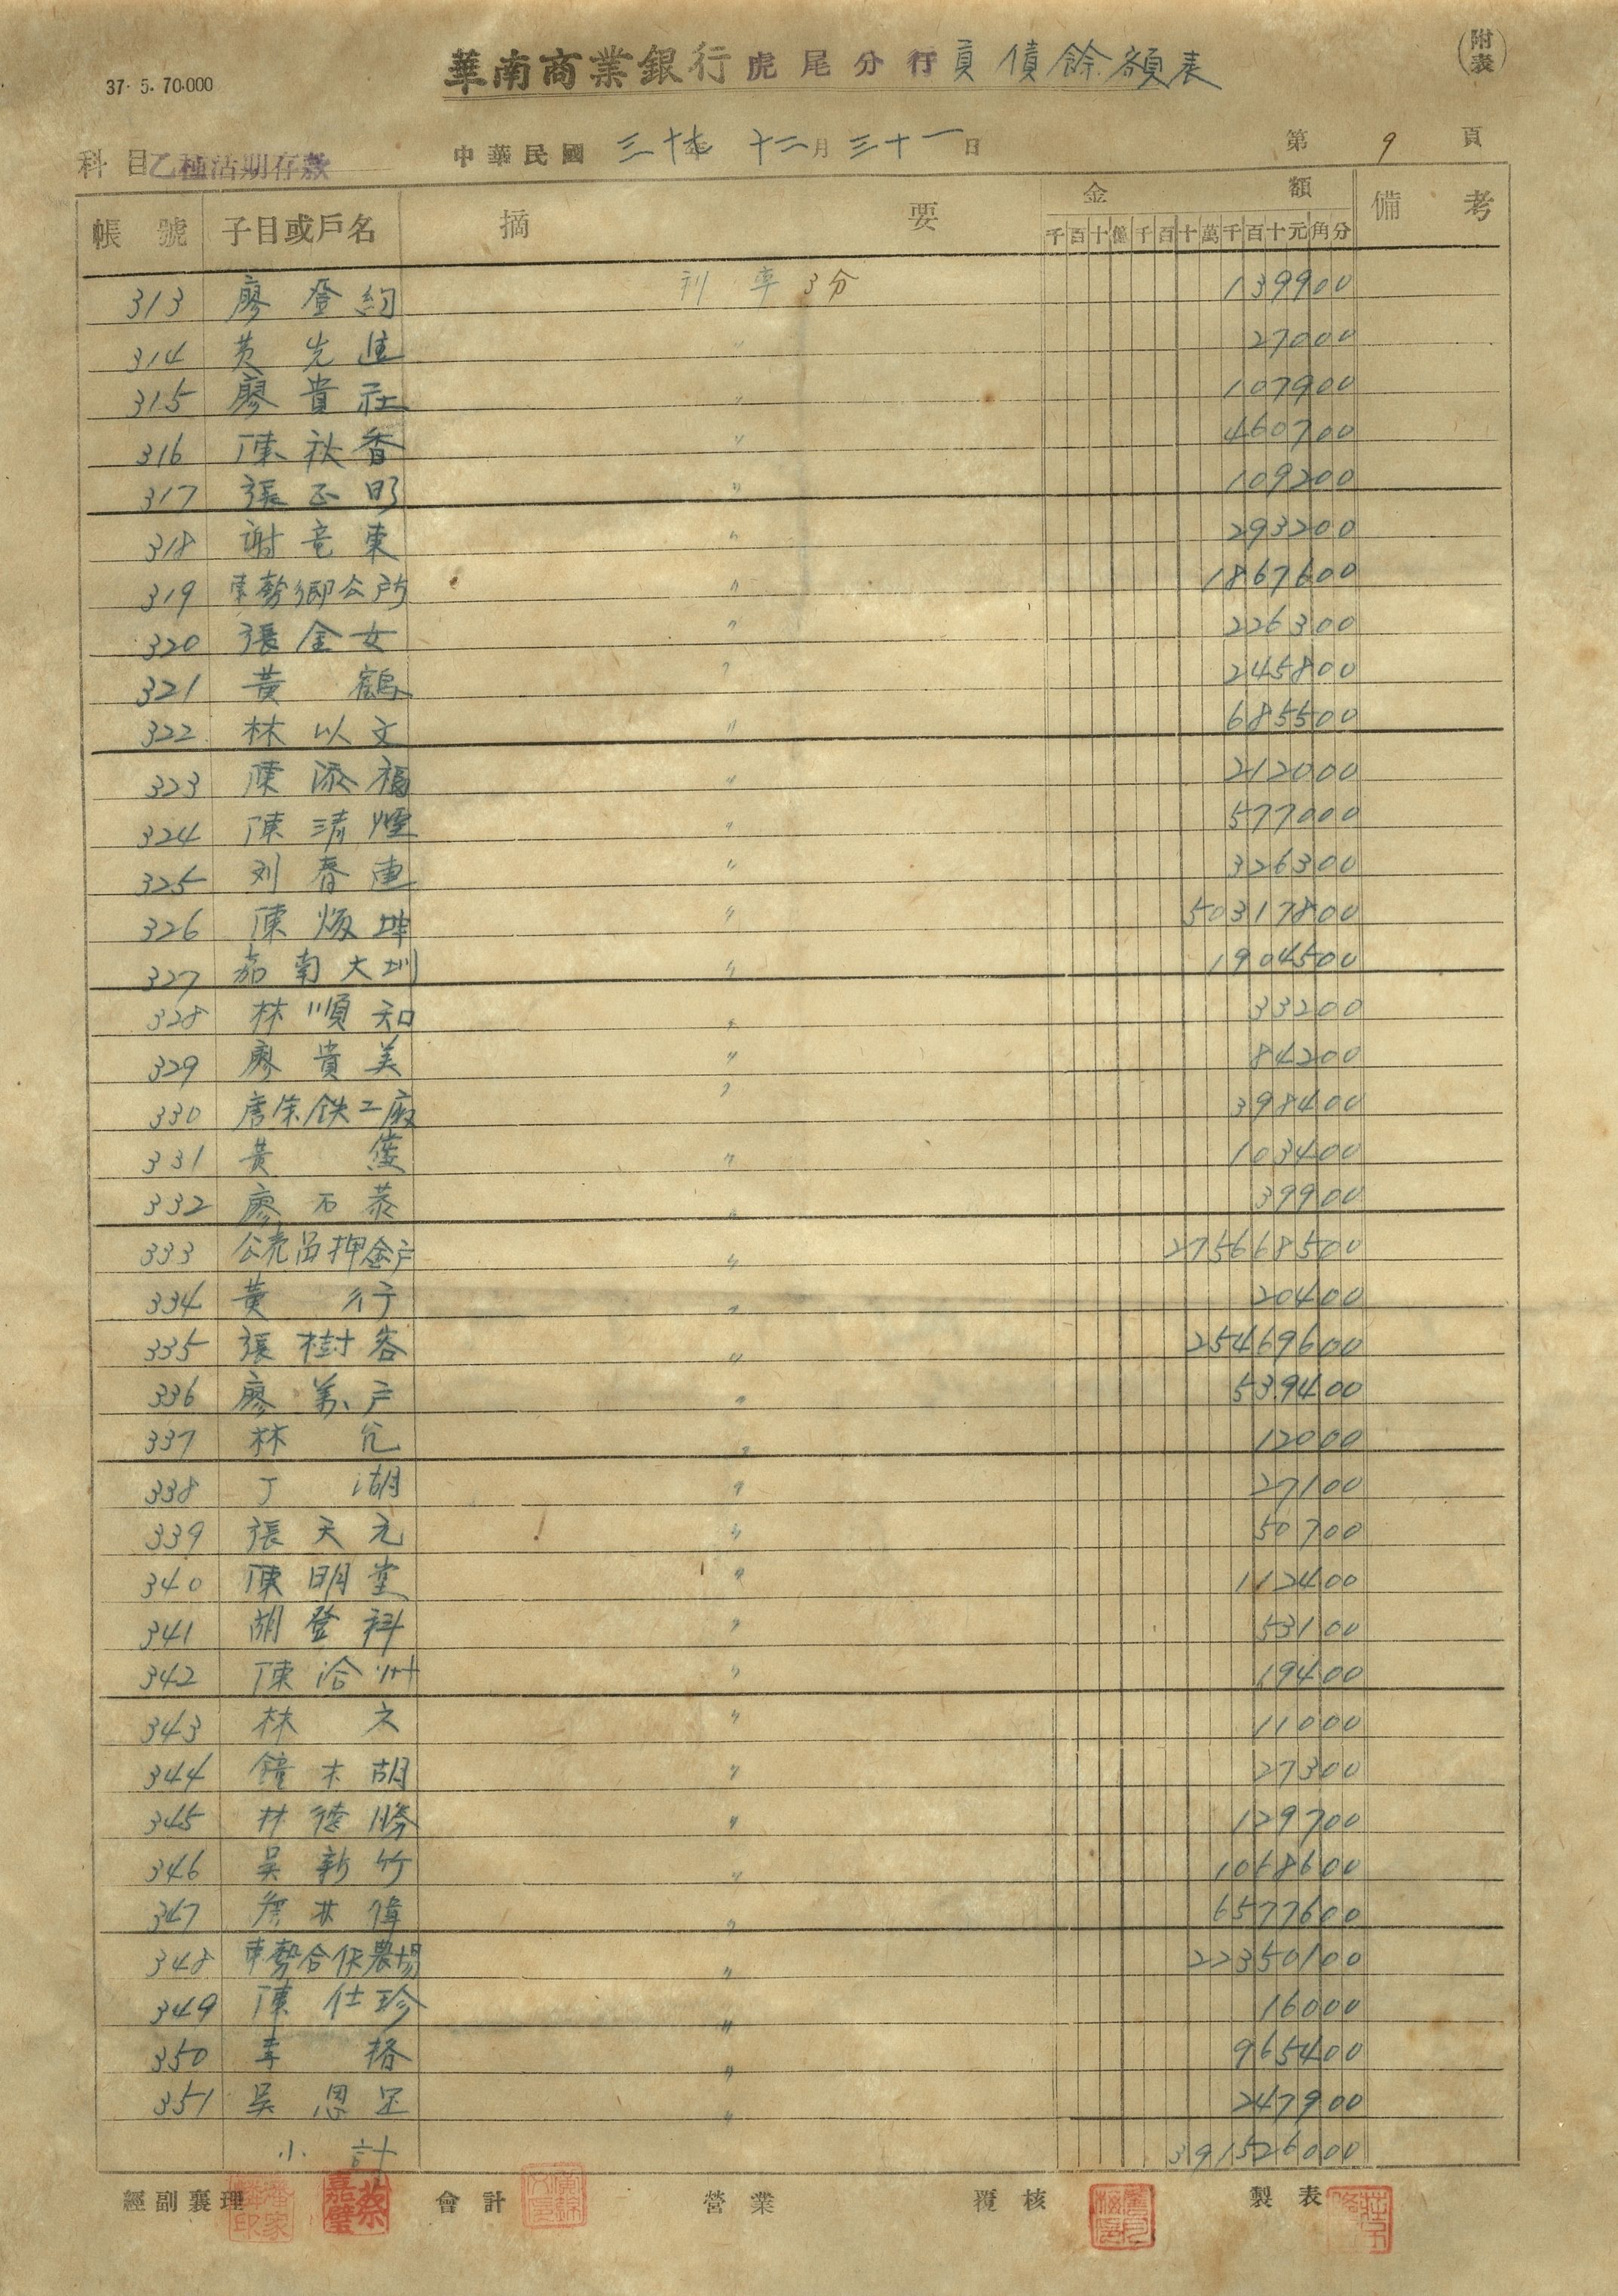 37. 5. 70.000
華南商業銀行虎尾分行負債餘額表
(附表)
科目乙種活期存款 中華民國三十七年十二月三十一日 第9頁
帳號 子目或戶名 摘要 金額 備考
千百十億千百十萬千百十元角分
313 廖登約 利率3分 139900
314 黃先進 〃 27000
315 廖貴社 〃 107900
316 陳秋香 〃 460700
317 張正明 〃 109200
318 謝竜東 〃 293200
319 東勢鄉公所 〃 1867600
320 張金女 〃 226300
321 黃鶴 〃 245800
322 林以文 〃 685500
323 陳添福 〃 212000
324 陳清煙 〃 577000
325 刘春連 〃 326300
326 陳坤 〃 50317800
327 嘉南大圳 〃 1904500
328 林順和 〃 33200
329 廖貴美 〃 84200
330 唐栄鉄工廠 〃 398400
331 黃 〃 103400
332 廖石恭 〃 39900
333 公売品押金戶 〃 275668500
334 黃行 〃 20400
335 張樹容 〃 25469600
336 廖戶 〃 539400
337 林 〃 12000
338 丁湖 〃 27100
339 張天元 〃 50700
340 陳明堂 〃 112400
341 胡登科 〃 53100
342 陳洽州 〃 19400
343 林 〃 11000
344 鐘木胡 〃 27300
345 林德勝 〃 129700
346 吳新竹 〃 1068600
347 詹林偉 〃 6577600
348 東勢合作農場 〃 22350100
349 陳仕珍 〃 16000
350 李 〃 965400
351 吳恩足 〃 247900
小計 391526000
經副襄理 會計 營業 覆核 製表
蔡嘉璧